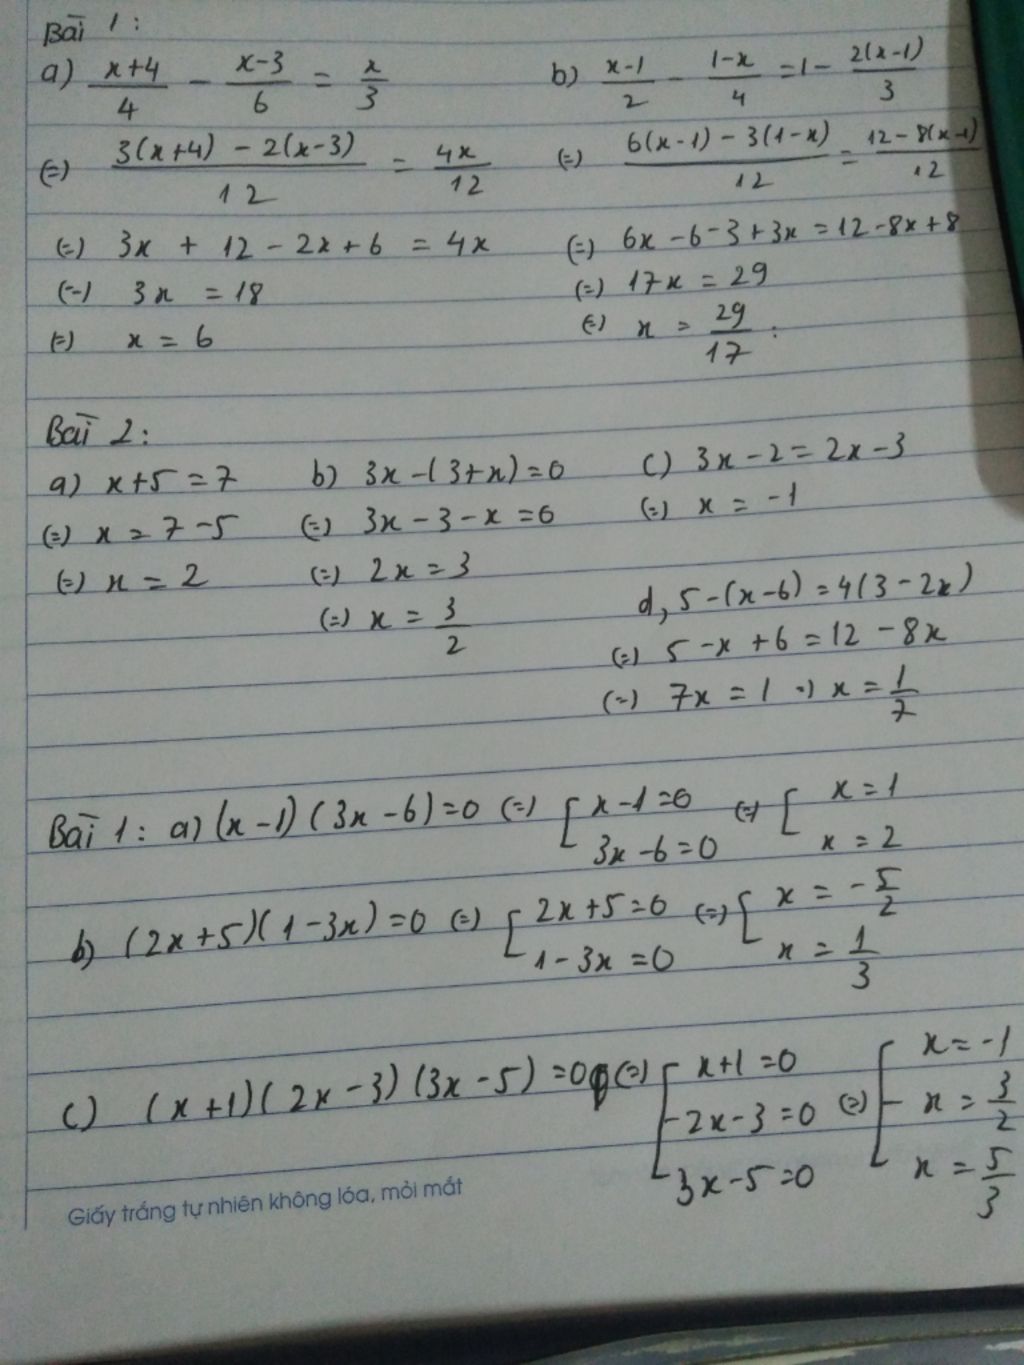 Bài 1:
a) (x+4)/4 - (x-3)/6 = x/3
(=) (3(x+4) - 2(x-3))/12 = 4x/12
(=) 3x + 12 - 2x + 6 = 4x
(=) 3x = 18
(=) x = 6
b) (x-1)/2 - (1-x)/4 = 1 - 2(x-1)/3
(=) (6(x-1) - 3(1-x))/12 = (12 - 8(x-1))/12
(=) 6x - 6 - 3 + 3x = 12 - 8x + 8
(=) 17x = 29
(=) x = 29/17 :
Bài 2:
a) x+5 = 7
(=) x = 7 - 5
(=) x = 2
b) 3x - (3+x) = 0
(=) 3x - 3 - x = 0
(=) 2x = 3
(=) x = 3/2
c) 3x - 2 = 2x - 3
(=) x = -1
d, 5 - (x-6) = 4(3 - 2x)
(=) 5 - x + 6 = 12 - 8x
(=) 7x = 1 =) x = 1/7
Bài 1: a) (x-1)(3x-6)=0 (=) [ x-1=0 (=) [ x=1
3x-6=0 x=2
b) (2x+5)(1-3x)=0 (=) [ 2x+5=0 (=) [ x = -5/2
1-3x=0 x = 1/3
c) (x+1)(2x-3)(3x-5)=0 (=) [ x+1=0 (=) [ x=-1
2x-3=0 x = 3/2
3x-5=0 x = 5/3
Giấy trắng tự nhiên không lóa, mỏi mắt